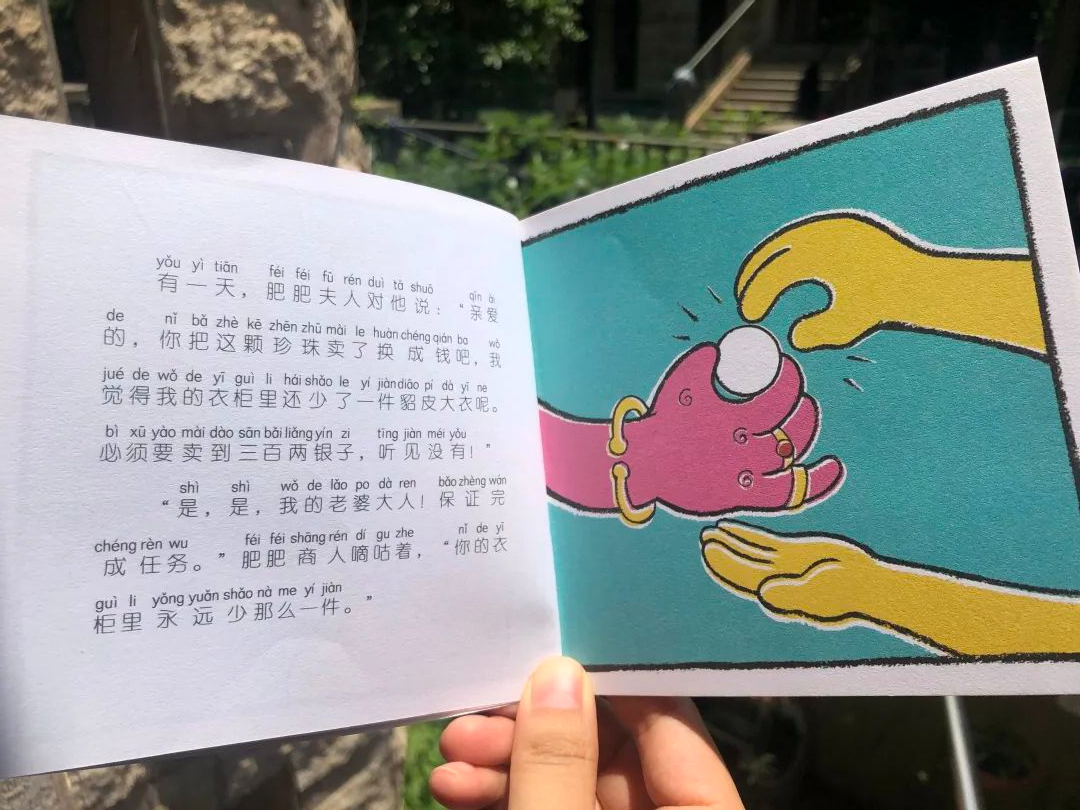 yǒu yì tiān féi féi fū rén duì tā shuō qīn ài
有一天，肥肥夫人对他说：“亲爱
de nǐ bǎ zhè kē zhēn zhū mài le huàn chéng qián ba wǒ
的，你把这颗珍珠卖了换成钱吧，我
jué de wǒ de yī guì li hái shǎo le yí jiàn diāo pí dà yī ne
觉得我的衣柜里还少了一件貂皮大衣呢。
bì xū yào mài dào sān bǎi liǎng yín zi tīng jiàn méi yǒu
必须要卖到三百两银子，听见没有！”
shì shì wǒ de lǎo po dà ren bǎo zhèng wán
“是，是，我的老婆大人！保证完
chéng rèn wu féi féi shāng rén dí gu zhe nǐ de yī
成任务。”肥肥商人嘀咕着，“你的衣
guì li yǒng yuǎn shǎo nà me yí jiàn
柜里永远少那么一件。”